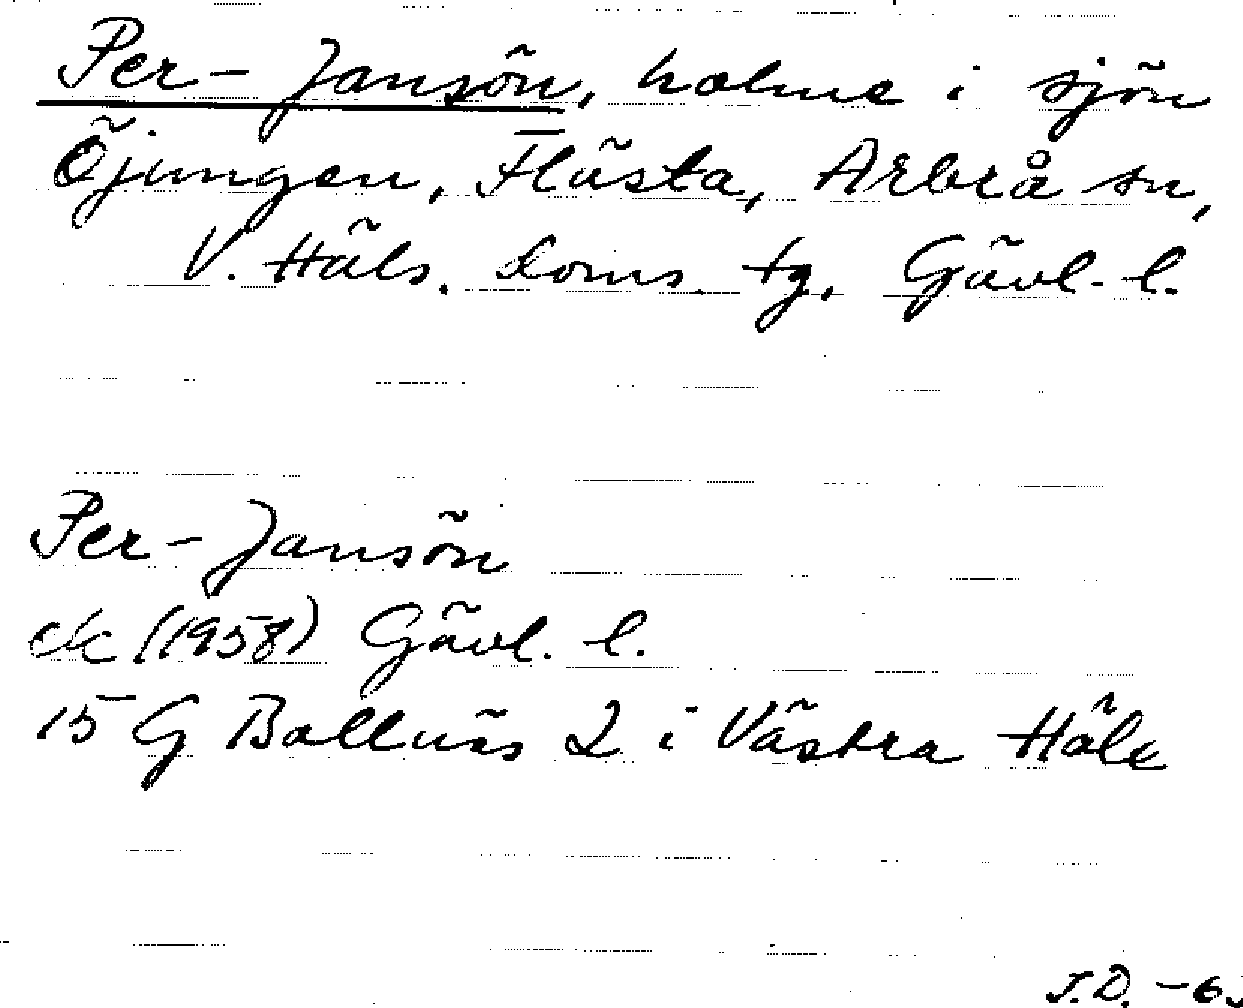 Per-Jansön, holme i sjön
Öjungen, Flästa, Arbrå sn,
V. Häls. Doms. tg, Gävl. l.
Per-Jansön
ek (1958) Gävl. l.
15 G Bollnäs 2 i Västra Häls
J.D. -6